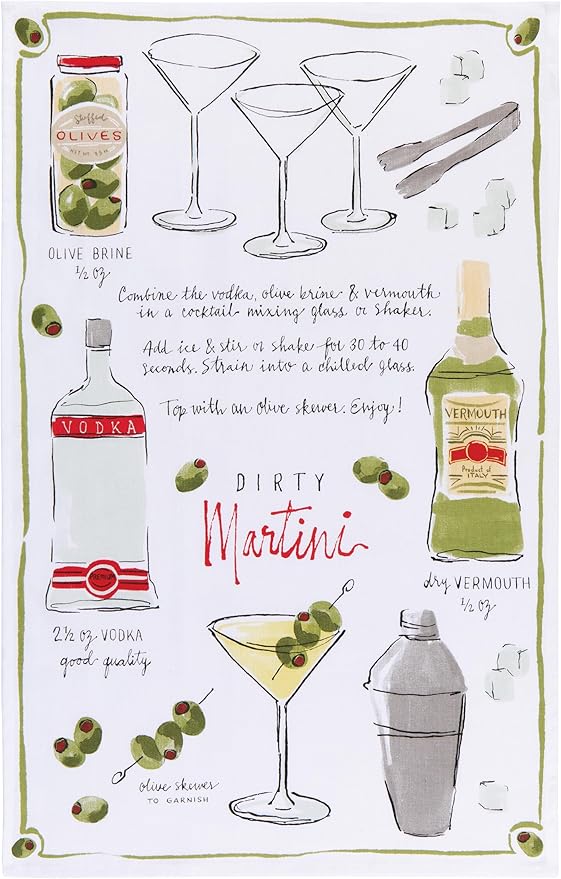 Stuffed
OLIVES
OLIVE BRINE
1/2 oz
Combine the vodka, olive brine & vermouth
in a cocktail mixing glass or shaker.
Add ice & stir or shake for 30 to 40
seconds. Strain into a chilled glass.
Top with an olive skewer. Enjoy!
VODKA
PREMIUM
2 1/2 oz VODKA
good quality
VERMOUTH
Product of
ITALY
dry VERMOUTH
1/2 oz
DIRTY
Martini
olive skewer
TO GARNISH